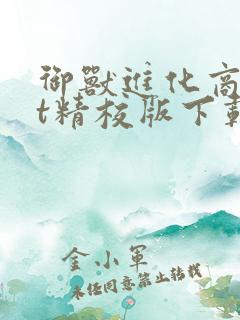 御獸進化商
t精校版下載
金小軍
未经同意禁止转载